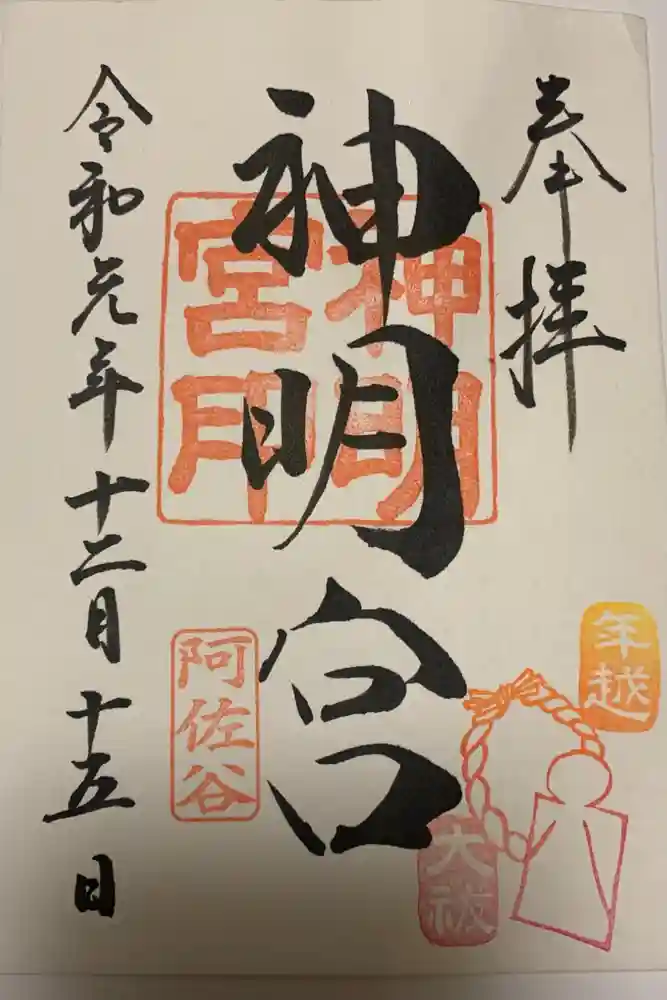 奉拝
神明宮
神明
宮印
年越
大祓
阿佐谷
令和元年十二月十五日